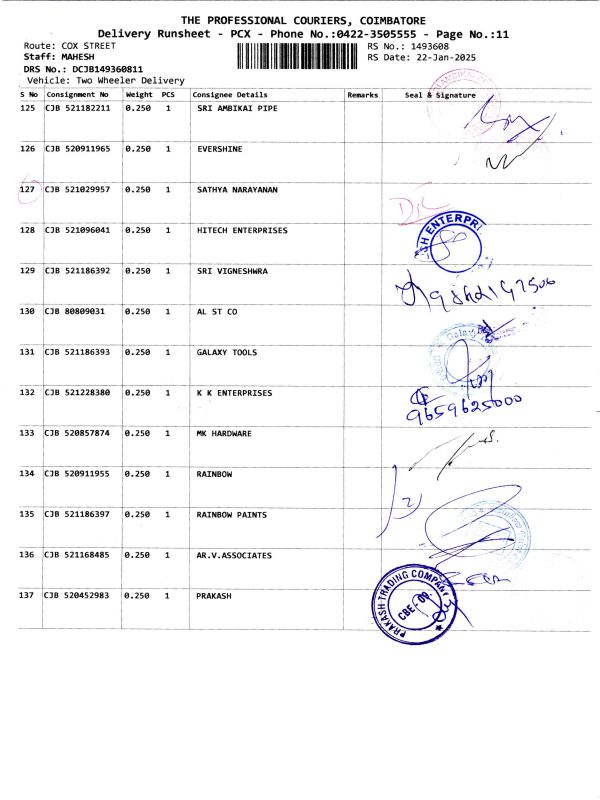 THE PROFESSIONAL COURIERS, COIMBATORE
Delivery Runsheet - PCX - Phone No.:0422-3505555 - Page No.:11
Route: COX STREET RS No.: 1493608
Staff: MAHESH RS Date: 22-Jan-2025
DRS No.: DCJB149360811
Vehicle: Two Wheeler Delivery
S No Consignment No Weight PCS Consignee Details Remarks Seal & Signature
125 CJB 521182211 0.250 1 SRI AMBIKAI PIPE
126 CJB 520911965 0.250 1 EVERSHINE
127 CJB 521029957 0.250 1 SATHYA NARAYANAN
128 CJB 521096041 0.250 1 HITECH ENTERPRISES
SH ENTERPRI
129 CJB 521186392 0.250 1 SRI VIGNESHWRA
130 CJB 80809031 0.250 1 AL ST CO
131 CJB 521186393 0.250 1 GALAXY TOOLS
Galaxy
132 CJB 521228380 0.250 1 K K ENTERPRISES
9659625000
133 CJB 520857874 0.250 1 MK HARDWARE
134 CJB 520911955 0.250 1 RAINBOW
135 CJB 521186397 0.250 1 RAINBOW PAINTS
Rainbow
136 CJB 521168485 0.250 1 AR.V.ASSOCIATES
137 CJB 520452983 0.250 1 PRAKASH
PRAKASH TRADING COMPANY
CBE-09.